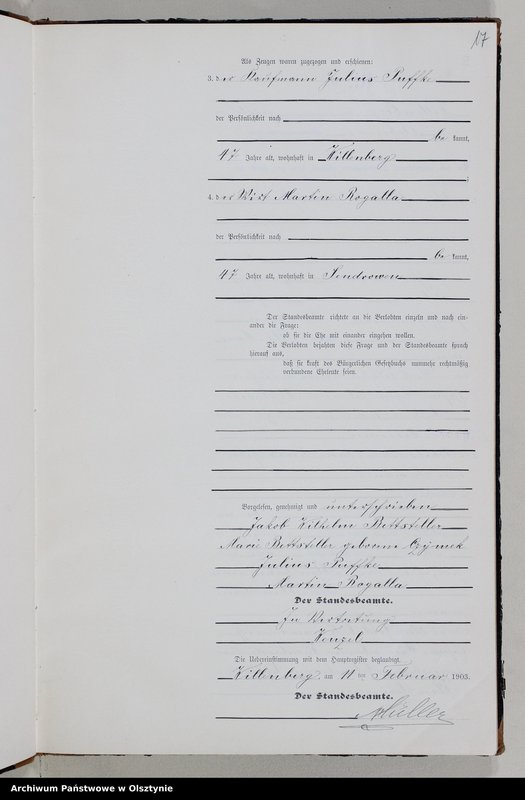 17
Als Zeugen waren zugezogen und erschienen:
3. der Kaufmann Julius Puffke
der Persönlichkeit nach
be kannt,
47 Jahre alt, wohnhaft in Willenberg
;
4. der Wirt Martin Rogalla
der Persönlichkeit nach
be kannt,
47 Jahre alt, wohnhaft in Sendrowen
Der Standesbeamte richtete an die Verlobten einzeln und nach ein-
ander die Frage:
ob sie die Ehe mit einander eingehen wollen.
Die Verlobten bejahten diese Frage und der Standesbeamte sprach
hierauf aus,
daß sie kraft des Bürgerlichen Gesetzbuchs nunmehr rechtmäßig
verbundene Eheleute seien.
Vorgelesen, genehmigt und unterschrieben
Jakob Wilhelm Bettsteller
Marie Bettsteller geborene
Julius Puffke
Martin Rogalla
Der Standesbeamte.
In Vertretung
Wenzel
Die Uebereinstimmung mit dem Hauptregister beglaubigt.
Willenberg, am 11 ten Februar 1903.
Der Standesbeamte.
Müller
Archiwum Państwowe w Olsztynie